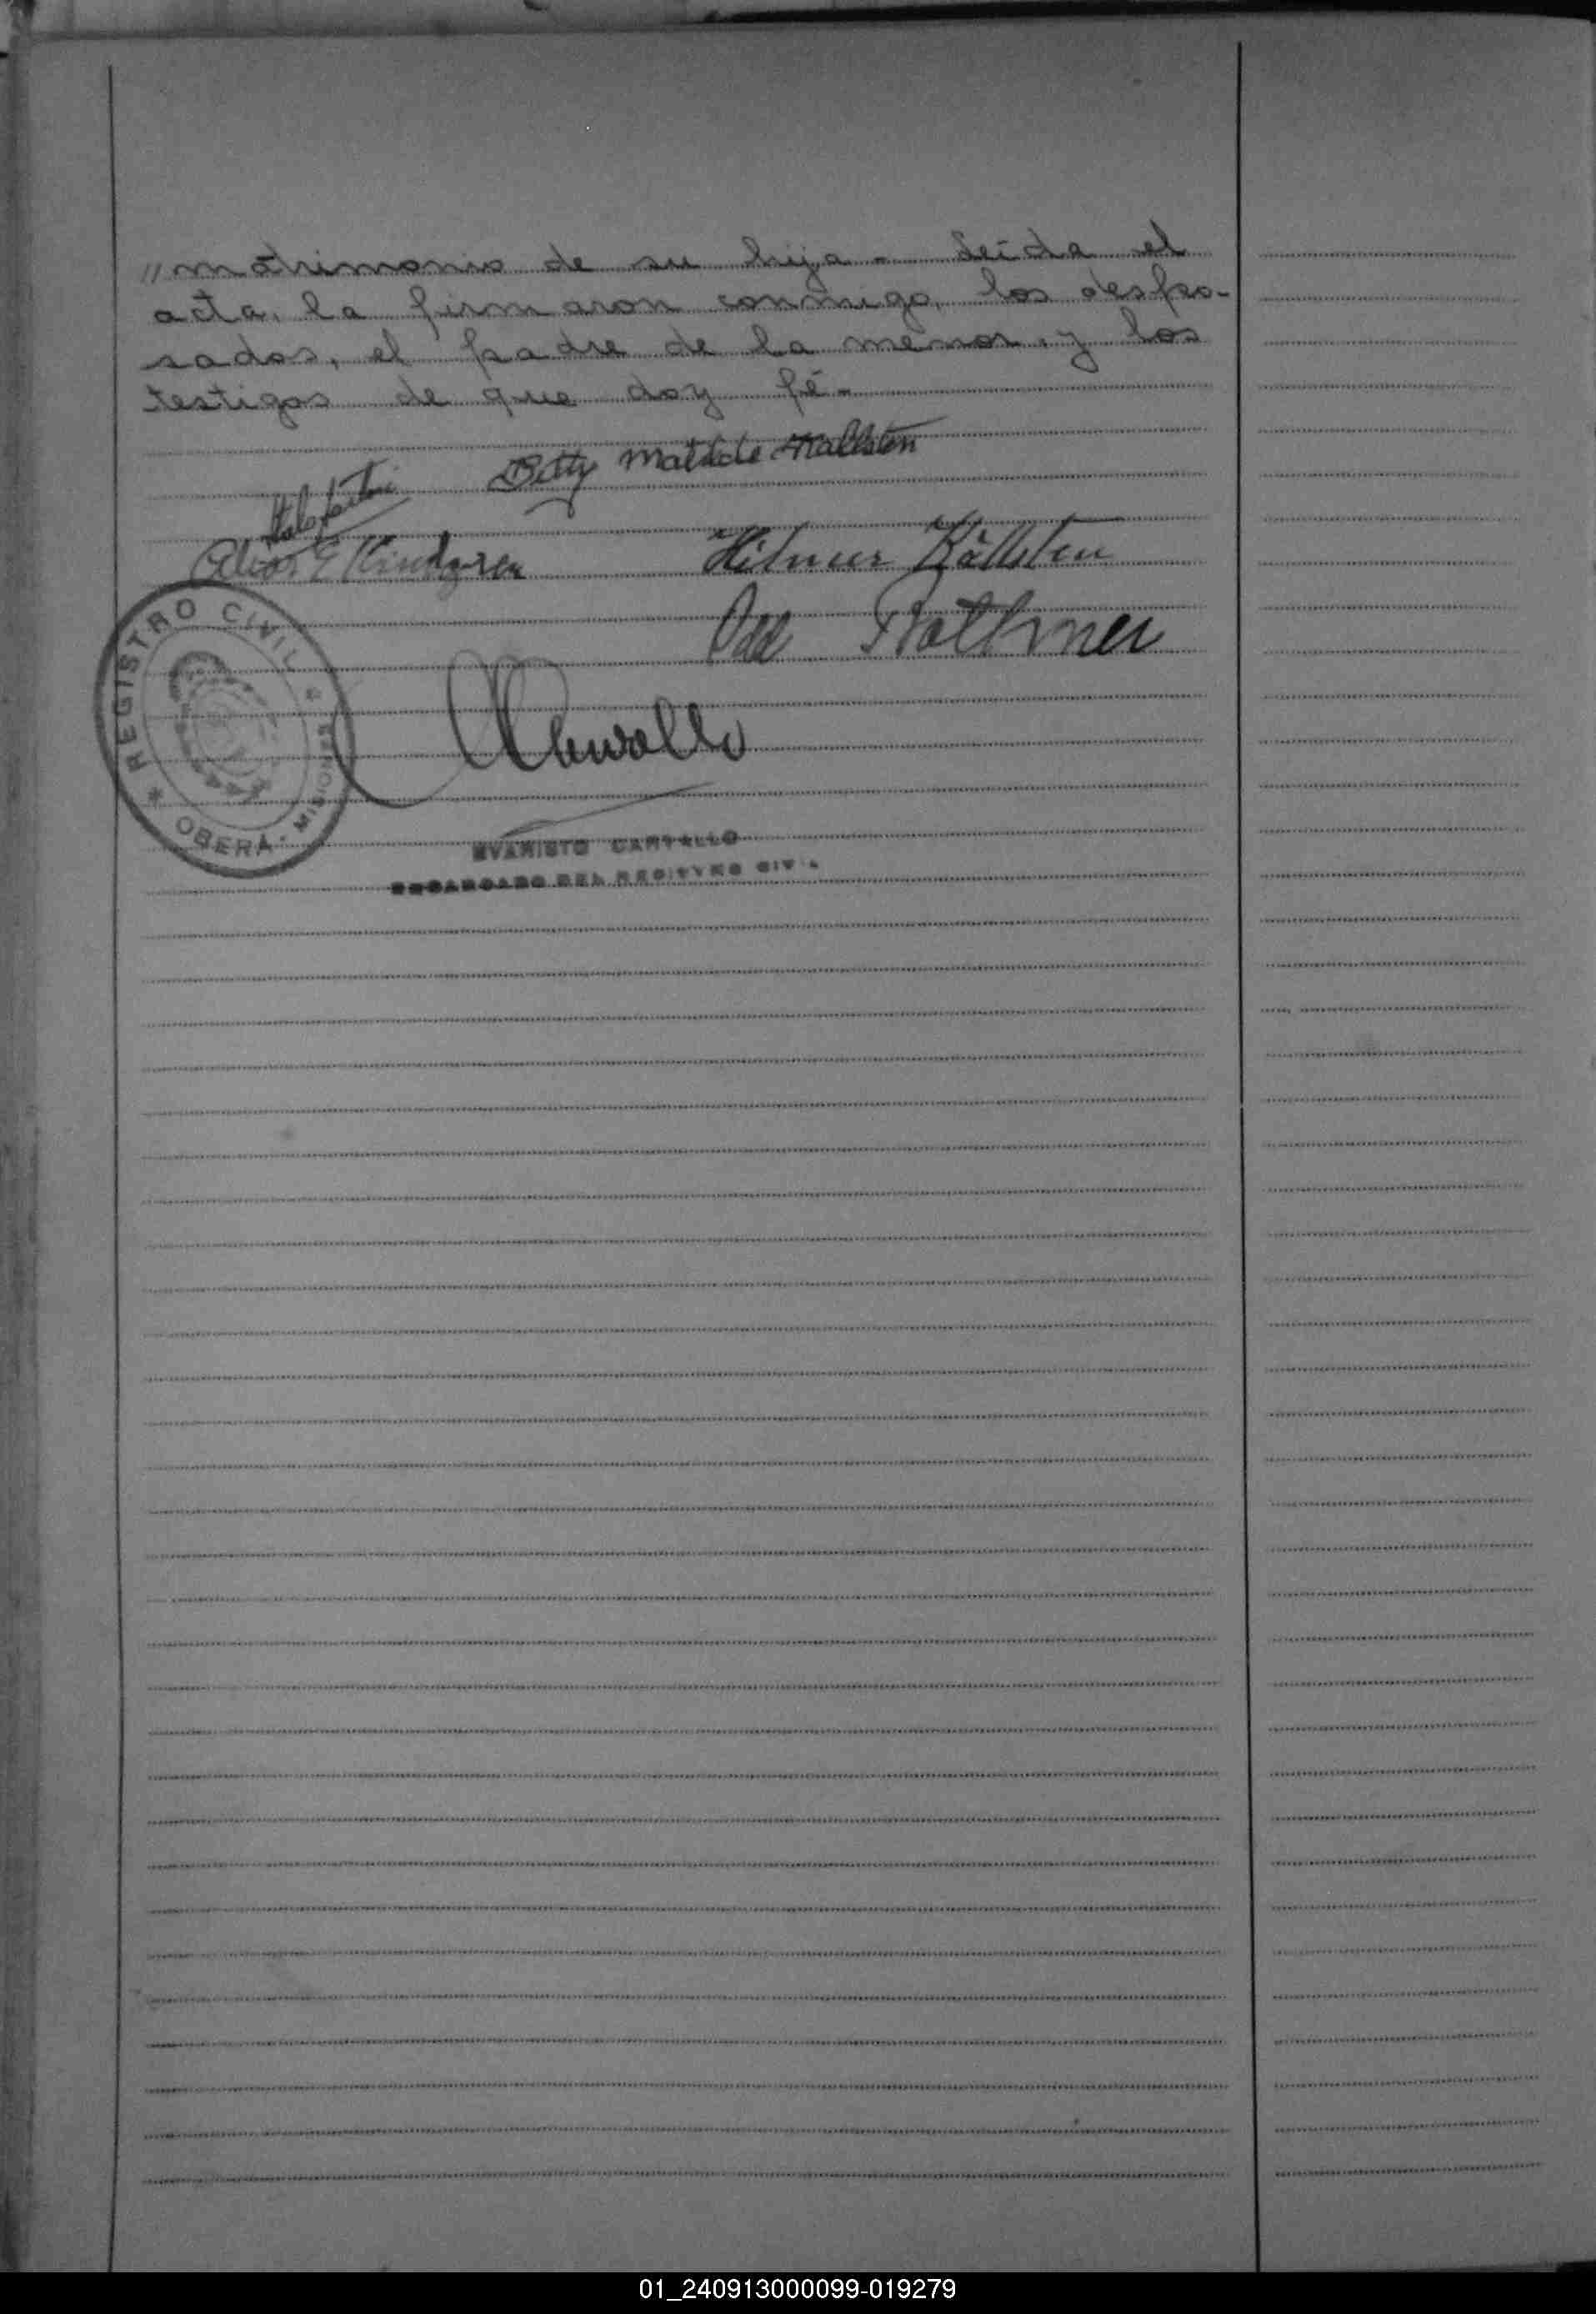 // matrimonio de su hija - Leída el
acta, la firmaron conmigo, los despo-
sados, el padre de la menor y los
testigos de que doy fé -
Betty Matilde Källsten
Hilmer Källsten
Odd Bothner
REGISTRO CIVIL
OBERÁ - MISIONES
EVARISTO CARVALLO
ENCARGADO DEL REGISTRO CIVIL
01_240913000099-019279